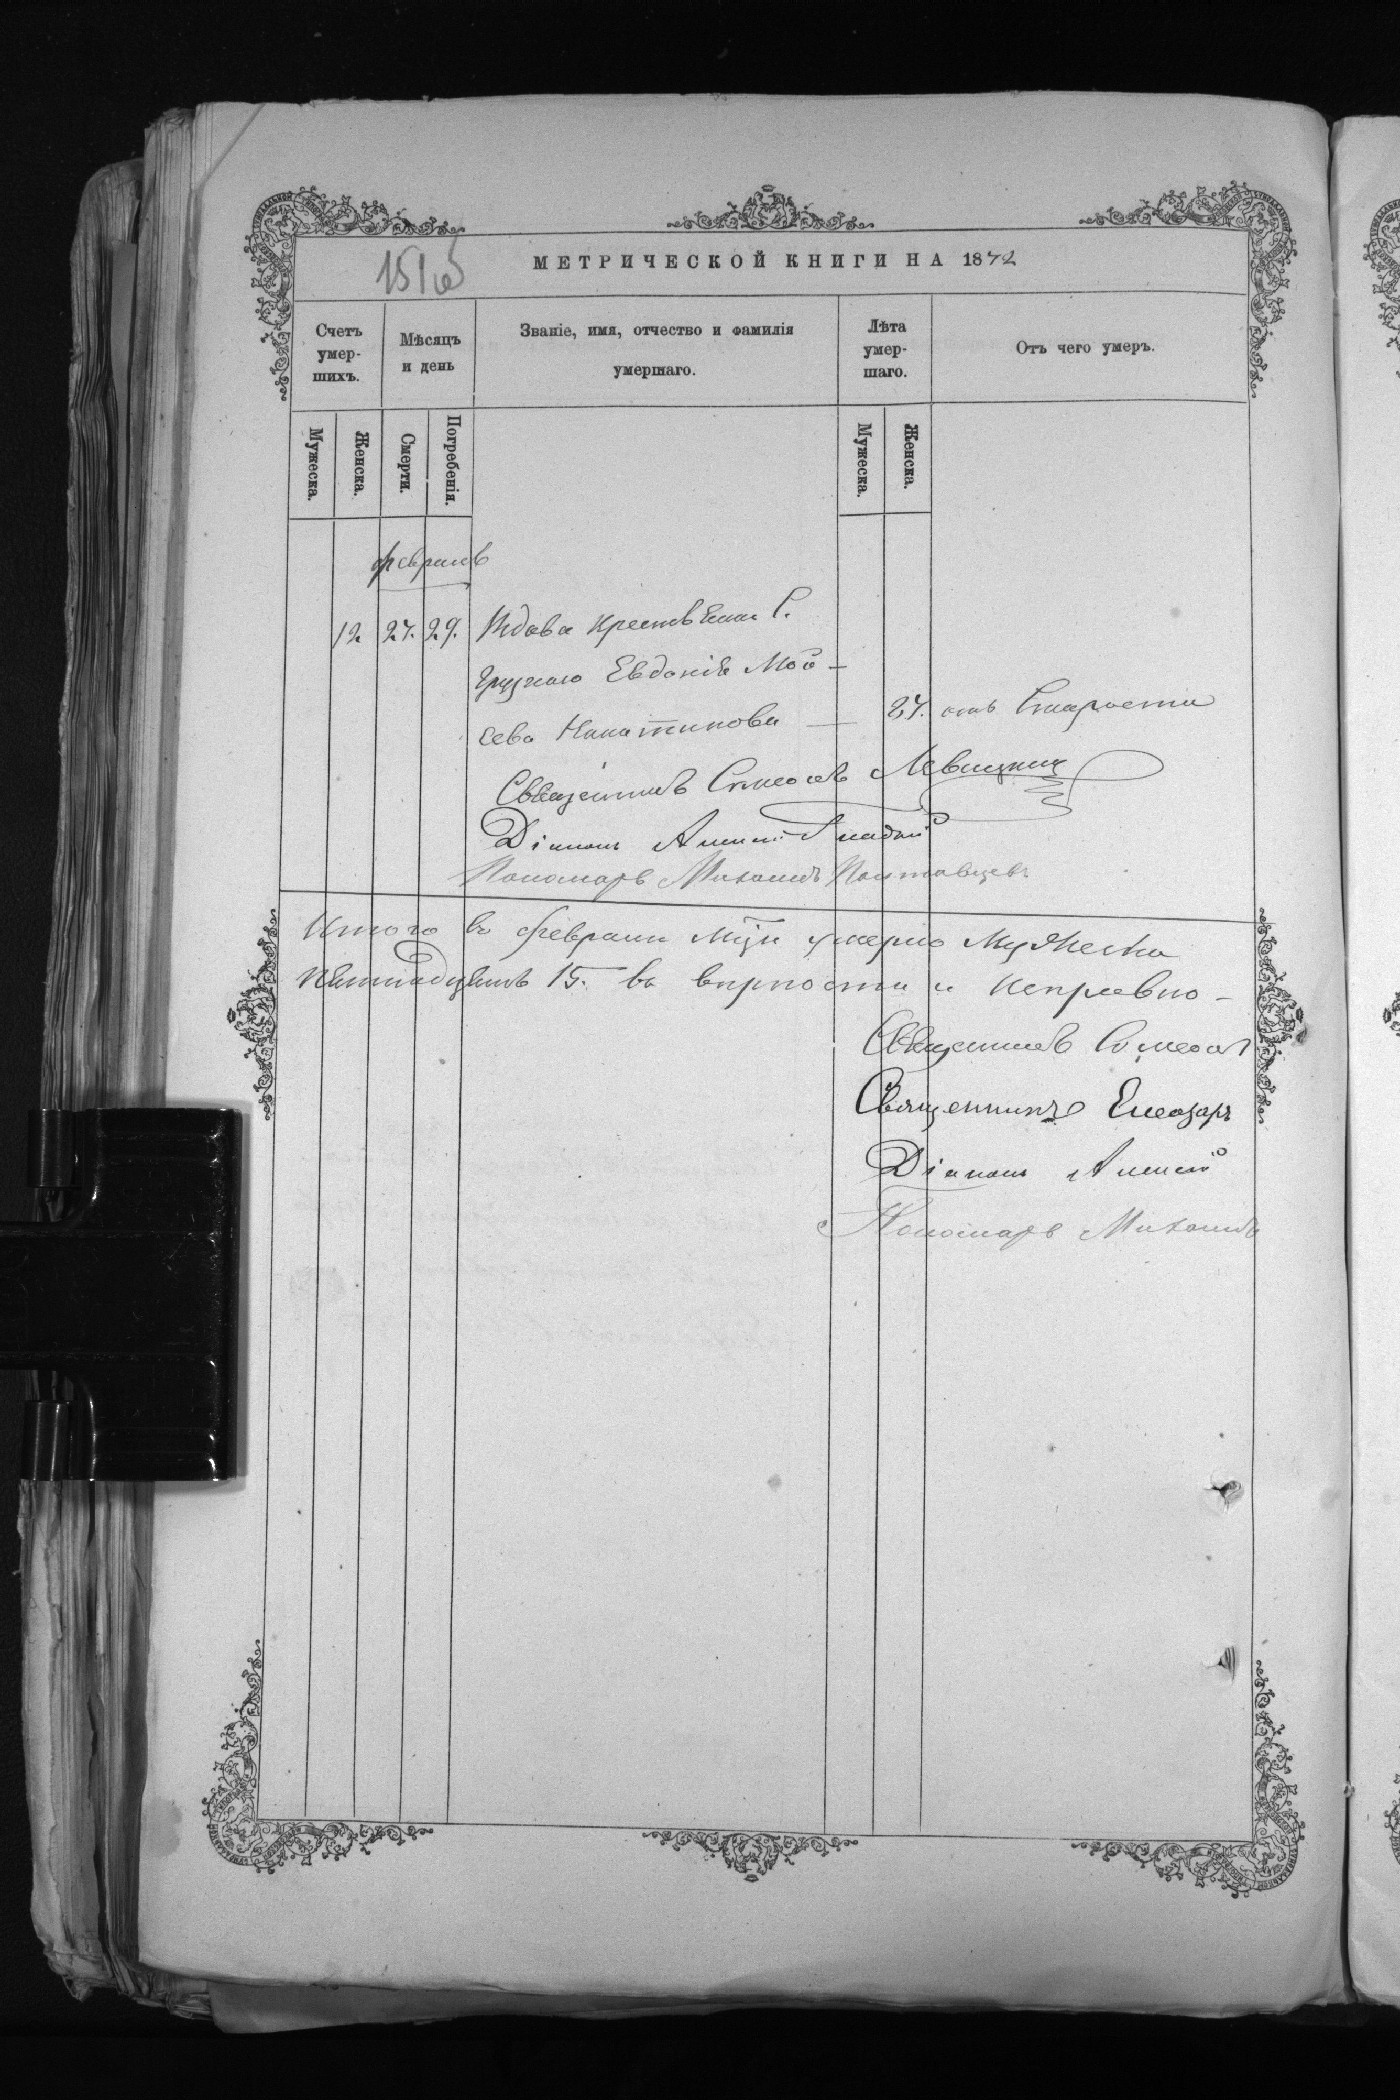 151 об
МЕТРИЧЕСКОЙ КНИГИ НА 1872
Счетъ умер-шихъ.
Мѣсяцъ и день
Званіе, имя, отчество и фамилія умершаго.
Лѣта умер-шаго.
Отъ чего умеръ.
Мужеска.
Женска.
Смерти.
Погребенія.
Мужеска.
Женска.
февраль
12 27. 29. Вдова С.
Грузкаго Евдокія Мой-
сеева 87. отъ Старости
Священникъ Симеонъ Левицкій
Діаконъ Алексій Гладкій
Пономарь Михаилъ Полтавцевъ
Итого въ февралѣ мцѣ умерло Мужеска
пятнадцать 15. въ вѣрности и исправно-
Священникъ Симеонъ
Священникъ Елеазаръ
Діаконъ Алексій
Пономарь Михаилъ